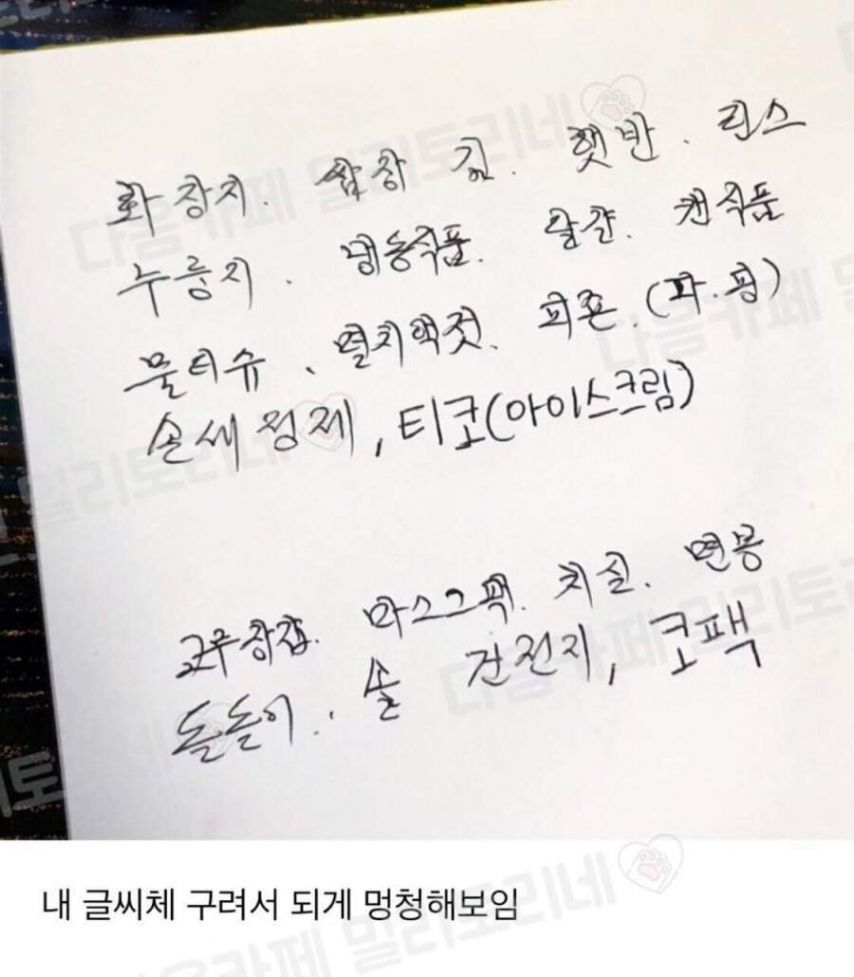 화장지. 쌈장 김. 햇반. 린스
누룽지. 냉동식품. 달걀. 캔식품
물티슈. 멸치액젓. 피죤. (파.핑)
손세정제, 티코(아이스크림)
고무장갑. 마스크팩. 치실. 면봉
돌돌이.. 솔 건전지, 코팩
내 글씨체 구려서 되게 멍청해보임
다음카페 밀리토리네